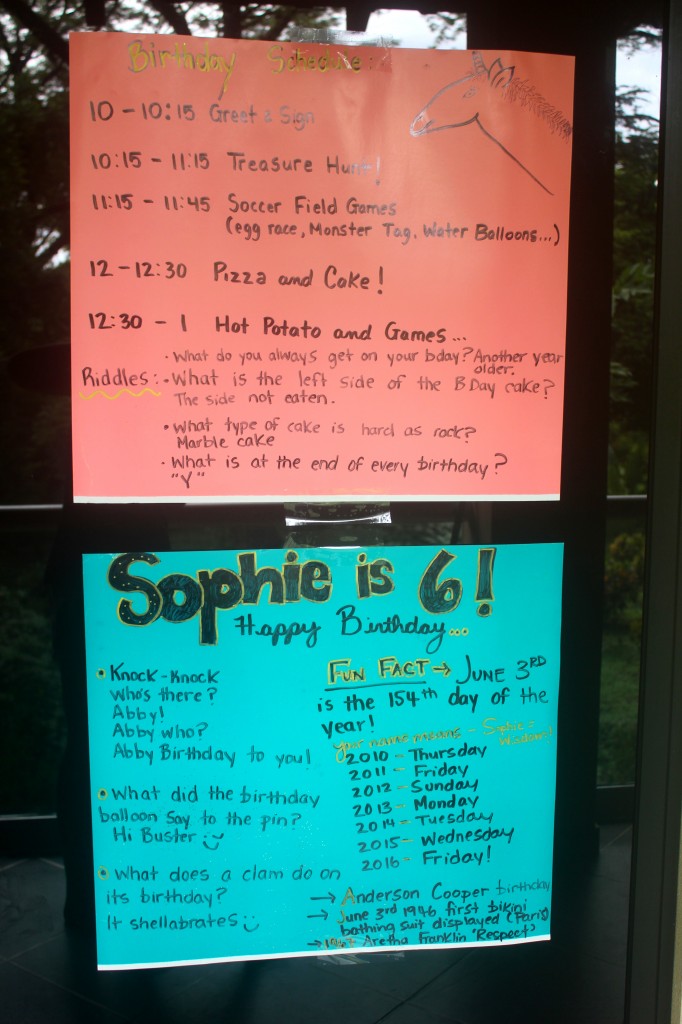 Birthday Schedule:
10 - 10:15 Greet & Sign
10:15 - 11:15 Treasure Hunt!
11:15 - 11:45 Soccer Field Games
(egg race, Monster Tag, Water Balloons...)
12 - 12:30 Pizza and Cake!
12:30 - 1 Hot Potato and Games...
• What do you always get on your bday? Another year
older.
Riddles: • What is the left side of the BDay cake?
The side not eaten.
• What type of cake is hard as rock?
Marble cake
• What is at the end of every birthday?
"Y"
Sophie is 6!
Happy Birthday...
• Knock-Knock
Who's there?
Abby!
Abby who?
Abby Birthday to you!
• What did the birthday
balloon say to the pin?
Hi Buster
• What does a clam do on
its birthday?
It shellabrates
FUN FACT → JUNE 3RD
is the 154th day of the
year!
your name means - Sophie =
Wisdom!
2010 - Thursday
2011 - Friday
2012 - Sunday
2013 - Monday
2014 - Tuesday
2015 - Wednesday
2016 - Friday!
→ Anderson Cooper birthday
→ June 3rd 1946 first bikini
bathing suit displayed (Paris)
→ 1967 Aretha Franklin 'Respect'